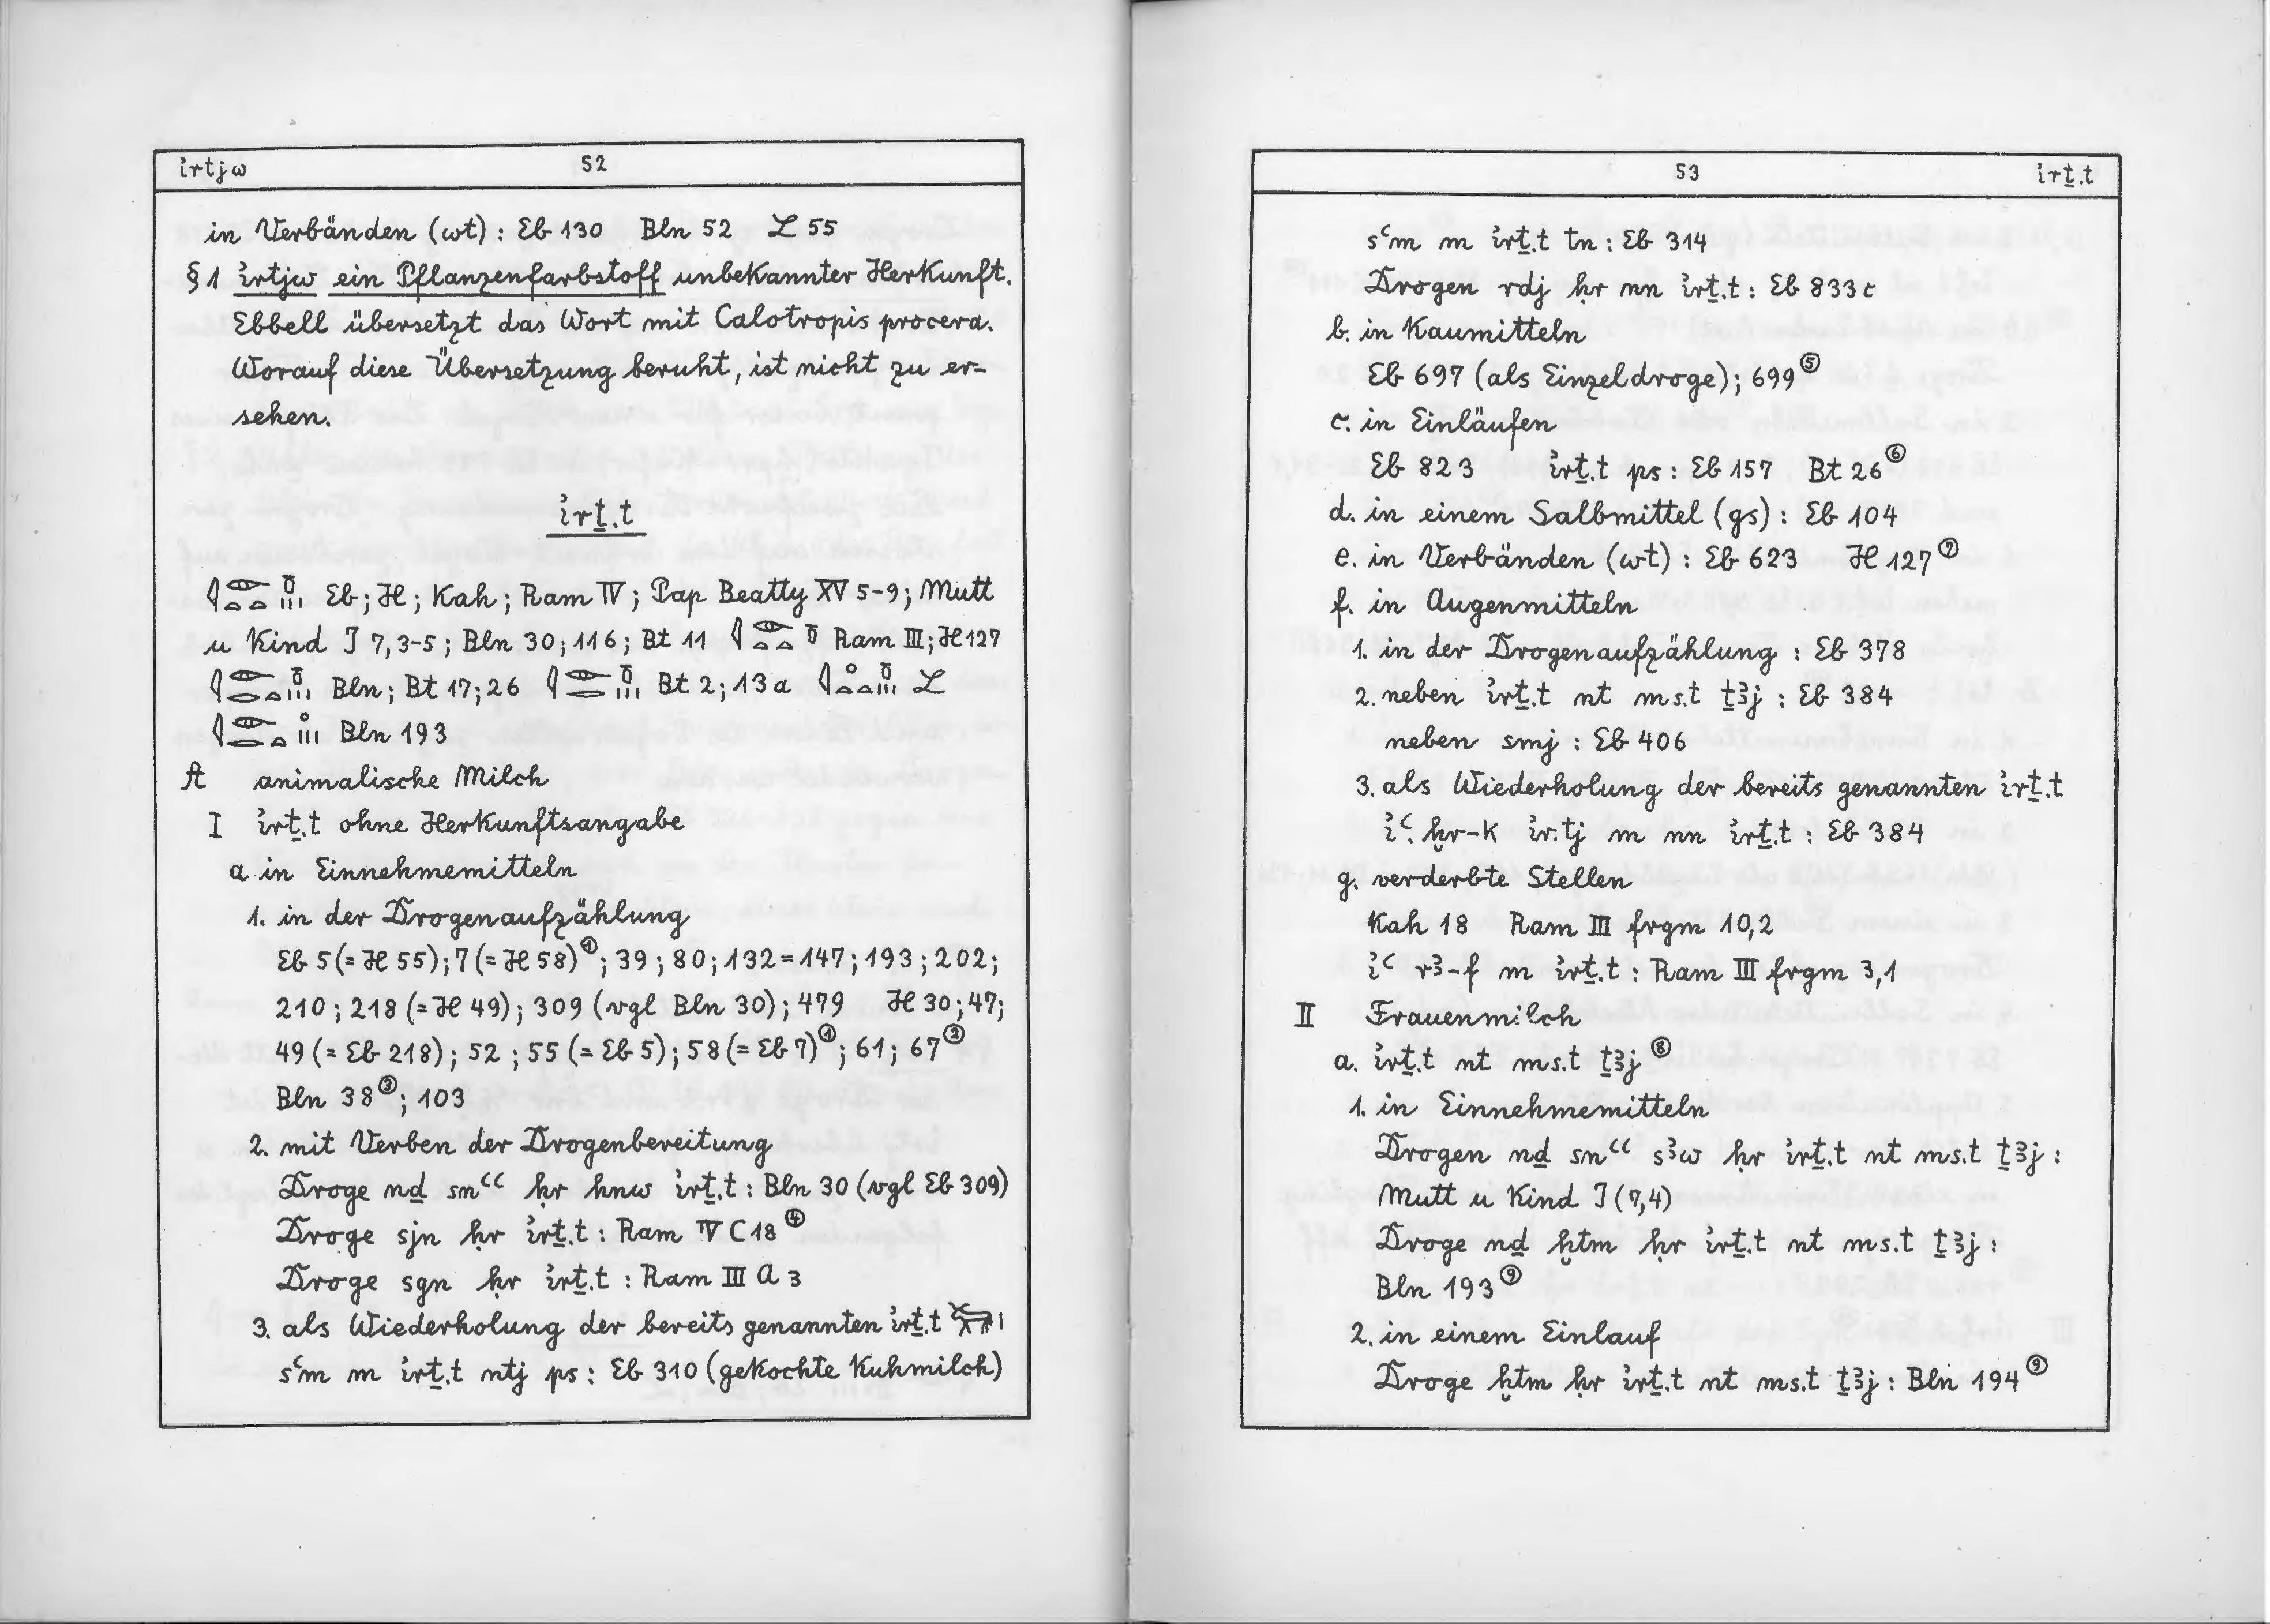 irtjw 52
in Verbänden (wt) : Eb 130 Bln 52 L 55
§ 1 irtjw ein Pflanzenfarbstoff unbekannter Herkunft.
Ebbell übersetzt das Wort mit Calotropis procera.
Worauf diese Übersetzung beruht, ist nicht zu er=
sehen.
i҆rṯ.t
Eb ; H ; Kah ; Ram IV ; Pap Beatty XV 5-9 ; Mutt
u Kind I 7,3-5 ; Bln 30 ; 116 ; Bt 11 Ram III ; H 127
Bln ; Bt 17 ; 26 Bt 2 ; 13a L
Bln 193
A animalische Milch
I i҆rṯ.t ohne Herkunftsangabe
a in Einnehmemitteln
1. in der Drogenaufzählung
Eb 5 (= H 55) ; 7 (= H 58)① ; 39 ; 80 ; 132 = 147 ; 193 ; 202 ;
210 ; 218 (= H 49) ; 309 (vgl Bln 30) ; 479 H 30 ; 47 ;
49 (= Eb 218) ; 52 ; 55 (= Eb 5) ; 58 (= Eb 7)① ; 61 ; 67②
Bln 38③ ; 103
2. mit Verben der Drogenbereitung
Droge nḏ snꜥꜥ ḥr hnw i҆rṯ.t : Bln 30 (vgl Eb 309)
Droge sjn ḥr i҆rṯ.t : Ram IV C 18④
Droge sgn ḥr i҆rṯ.t : Ram III A 3
3. als Wiederholung der bereits genannten i҆rṯ.t
sꜥm m i҆rṯ.t ntj ps : Eb 310 (gekochte Kuhmilch)
53 i҆rṯ.t
sꜥm m i҆rṯ.t tn : Eb 314
Drogen rdj ḥr nn i҆rṯ.t : Eb 833c
b. in Kaumitteln
Eb 697 (als Einzeldroge) ; 699⑤
c. in Einläufen
Eb 823 i҆rṯ.t ps : Eb 157 Bt 26⑥
d. in einem Salbmittel (gs) : Eb 104
e. in Verbänden (wt) : Eb 623 H 127⑦
f. in Augenmitteln
1. in der Drogenaufzählung : Eb 378
2. neben i҆rṯ.t nt ms.t ṯꜣj : Eb 384
neben smj : Eb 406
3. als Wiederholung der bereits genannten i҆rṯ.t
i҆ꜥ.ḫr-k i҆r.tj m nn i҆rṯ.t : Eb 384
g. verderbte Stellen
Kah 18 Ram III frgm 10,2
i҆ꜥ rꜣ-f m i҆rṯ.t : Ram III frgm 3,1
II Frauenmilch
a. i҆rṯ.t nt ms.t ṯꜣj⑧
1. in Einnehmemitteln
Drogen nḏ snꜥꜥ sꜣw ḥr i҆rṯ.t nt ms.t ṯꜣj :
Mutt u Kind I (7,4)
Droge nḏ ḫtm ḥr i҆rṯ.t nt ms.t ṯꜣj :
Bln 193⑨
2. in einem Einlauf
Droge ḫtm ḥr i҆rṯ.t nt ms.t ṯꜣj : Bln 194⑨